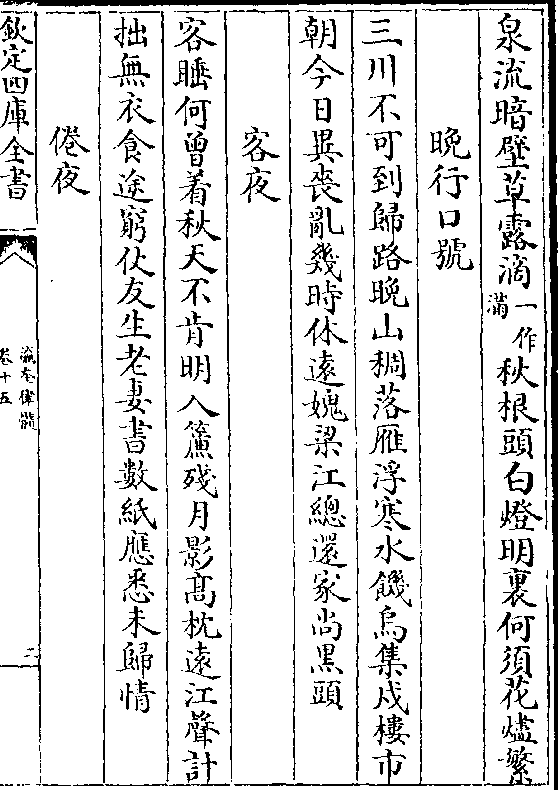 泉流暗壁草露滴一作滿秋根頭白燈明裏何須花燼繁
晚行口號
三川不可到歸路晚山稠落雁浮寒水饑烏集戍樓市
朝今日異喪亂幾時休遠媿梁江總還家尚黑頭
客夜
客睡何曾着秋天不肯明入簾殘月影高枕遠江聲計
拙無衣食途窮仗友生老妻書數紙應悉未歸情
倦夜
欽定四庫全書
瀛奎律髓
卷十五
二